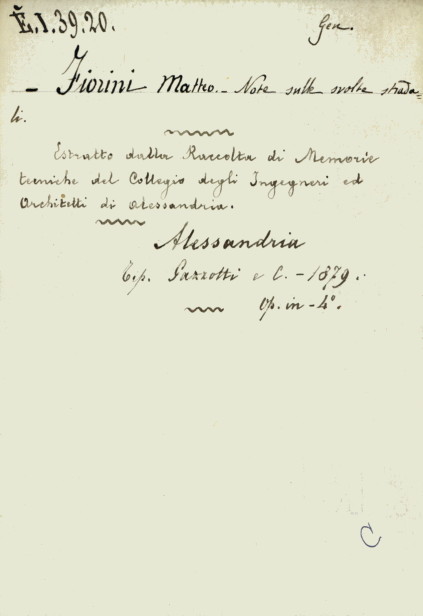 E.I.39.20.
Gen.
- Fiorini Matteo. - Note sulle svolte strada-
li.
Estratto dalla Raccolta di Memorie
tecniche del Collegio degli Ingegneri ed
Architetti di Alessandria.
Alessandria
Tip. Gazzotti e C. - 1879.
Op. in - 4°.
C